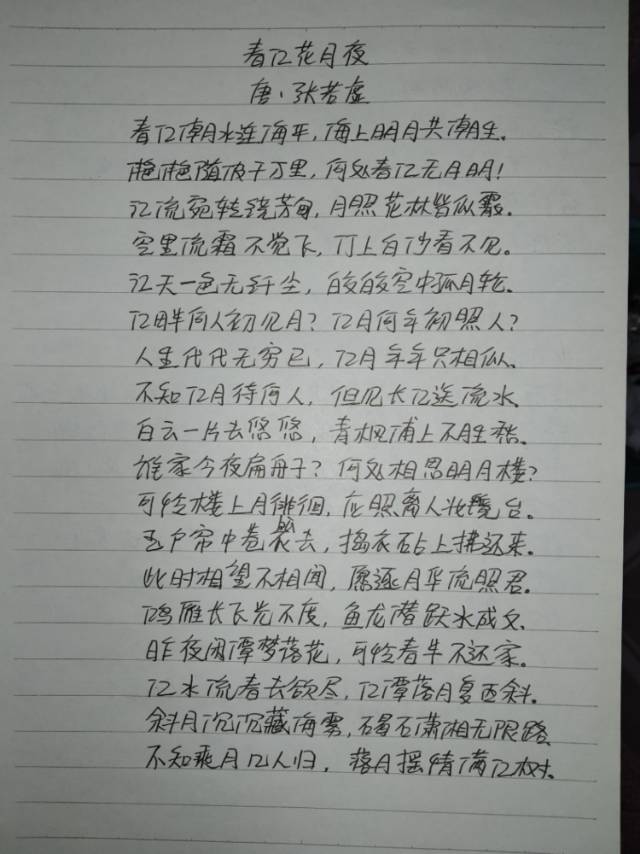 春江花月夜
唐·张若虚
春江潮水连海平,海上明月共潮生。
滟滟随波千万里,何处春江无月明!
江流宛转绕芳甸,月照花林皆似霰。
空里流霜不觉飞,汀上白沙看不见。
江天一色无纤尘,皎皎空中孤月轮。
江畔何人初见月?江月何年初照人?
人生代代无穷已,江月年年只相似。
不知江月待何人,但见长江送流水。
白云一片去悠悠,青枫浦上不胜愁。
谁家今夜扁舟子?何处相思明月楼?
可怜楼上月徘徊,应照离人妆镜台。
玉户帘中卷去,捣衣砧上拂还来。
此时相望不相闻,愿逐月华流照君。
鸿雁长飞光不度,鱼龙潜跃水成文。
昨夜闲潭梦落花,可怜春半不还家。
江水流春去欲尽,江潭落月复西斜。
斜月沉沉藏海雾,碣石潇湘无限路。
不知乘月几人归,落月摇情满江树。